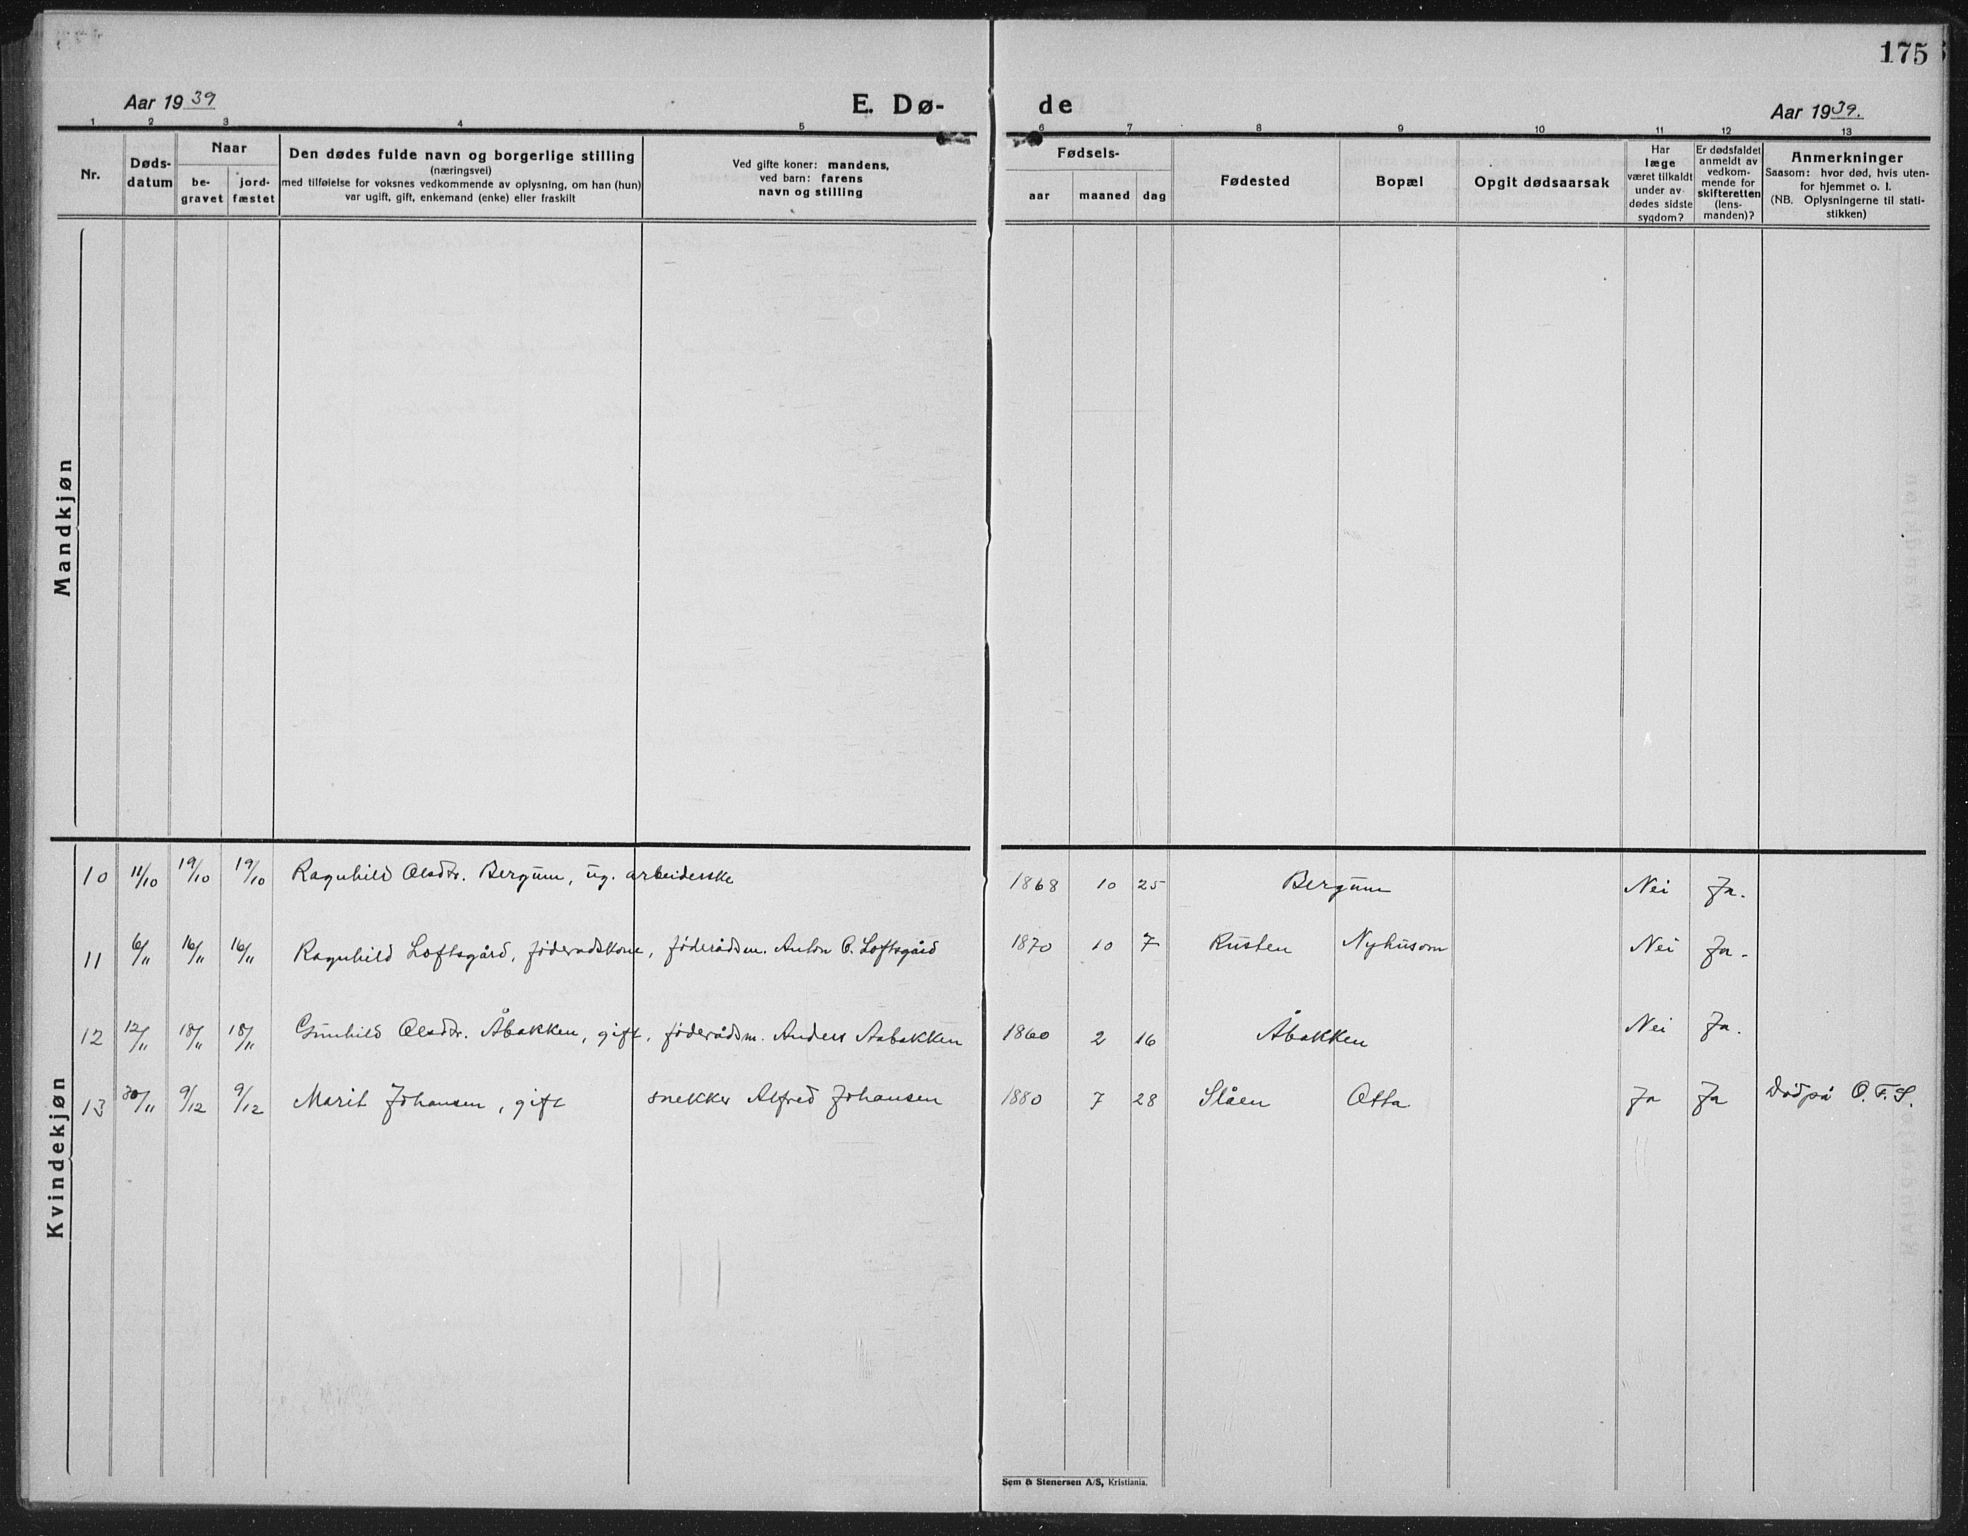 175
Aar 1939 E. Dø- de Aar 1939.
1 2 3 4 5 6 7 8 9 10 11 12 13
Nr.
Døds-
datum
Naar
be-
gravet
jord-
fæstet
Den dødes fulde navn og borgerlige stilling
(næringsvei)
med tilføielse for voksnes vedkommende av oplysning, om han (hun)
var ugift, gift, enkemand (enke) eller fraskilt
Ved gifte koner: mandens,
ved barn: farens
navn og stilling
Fødsels-
aar maaned dag
Fødested
Bopæl
Opgit dødsaarsak
Har
læge
været tilkaldt
under av-
dødes sidste
sygdom?
Er dødsfaldet
anmeldt av
vedkom-
mende for
skifteretten
(lens-
manden)?
Anmerkninger
Saasom: hvor død, hvis uten-
for hjemmet o. l.
(NB. Oplysningerne til stati-
stikken)
Mandkjøn
Kvindekjøn
10 11/10 19/10 19/10 Ragnhild Olsdtr. Bergum, ug. arbeiderske 1868 10 25 Bergum Nei Ja.
11 6/11 16/11 16/11 Ragnhild Loftsgård, føderadskone, føderådsm. Anton O. Loftsgård 1870 10 7 Rusten Nyhusom Nei Ja.
12 12/11 18/11 18/11 Gunhild Olsdtr. Åbakken, gift, føderådsm. Anders Aabakken 1860 2 16 Åbakken Nei Ja.
13 30/11 9/12 9/12 Marit Johansen, gift snekker Alfred Johansen 1880 7 28 Slåen Otta Ja Ja Död på O.F.S.
Sem & Stenersen A/S, Kristiania.